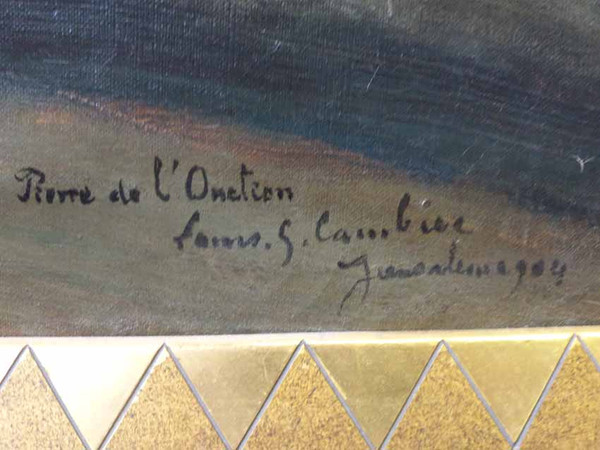 Pierre de l'Onction
Louis. G. Cambier
Jerusalem 1904